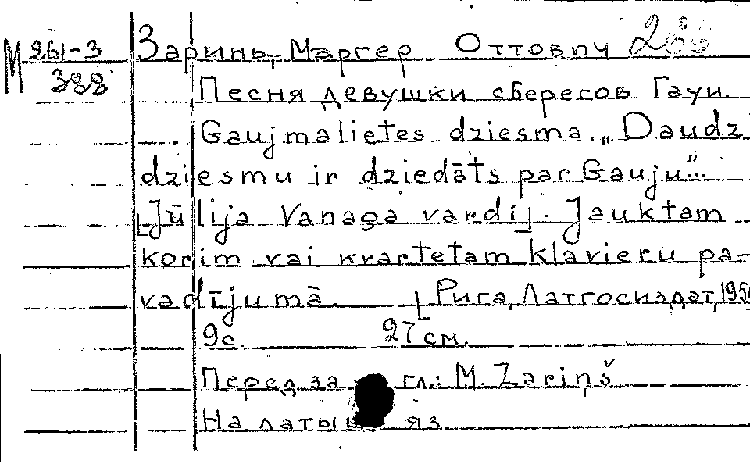 М 961-3 Заринь, Маргер Оттович 266
388 Песня девушки с берегов Гауи.
Gaujmalietes dziesma. „Daudz
dziesmu ir dziedāts par Gauju"...
[Jūlija Vanaga vārdi]. Jauktam
korim vai kvartetam klavieru pa-
vadījumā. [Рига, Латгосиздат,
9с. 27 см.
Перед за гл.: M. Zariņš
На латыш яз